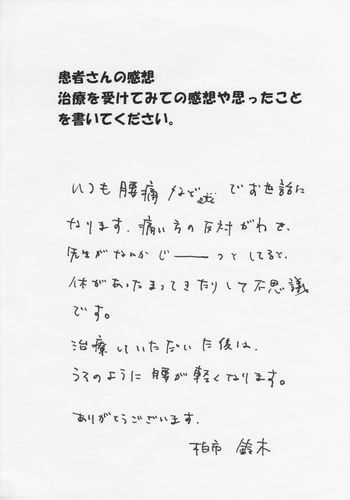 患者さんの感想
治療を受けてみての感想や思ったこと
を書いてください。
いつも腰痛などetc でお世話に
なります。痛い方の反対がわを、
先生がなんかじーーっとしてると、
体があったまってきたりして不思議
です。
治療していただいた後は、
うそのように腰が軽くなります。
ありがとうございます。
柏市 鈴木